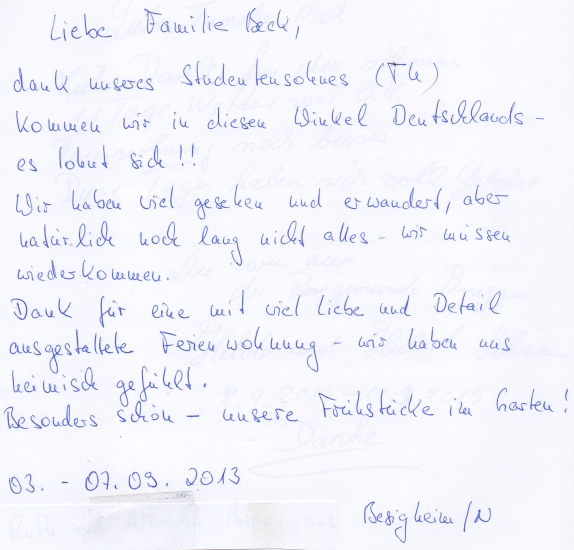 Liebe Familie Beck,
dank unseres Studentensohnes (TU)
kommen wir in diesen Winkel Deutschlands -
es lohnt sich!!
Wir haben viel gesehen und erwandert, aber
natürlich noch lang nicht alles - wir müssen
wiederkommen.
Dank für eine mit viel Liebe und Detail
ausgestaltete Ferienwohnung - wir haben uns
heimisch gefühlt.
Besonders schön - unsere Frühstücke im Garten!
03. - 07.09. 2013
Besigheim/N